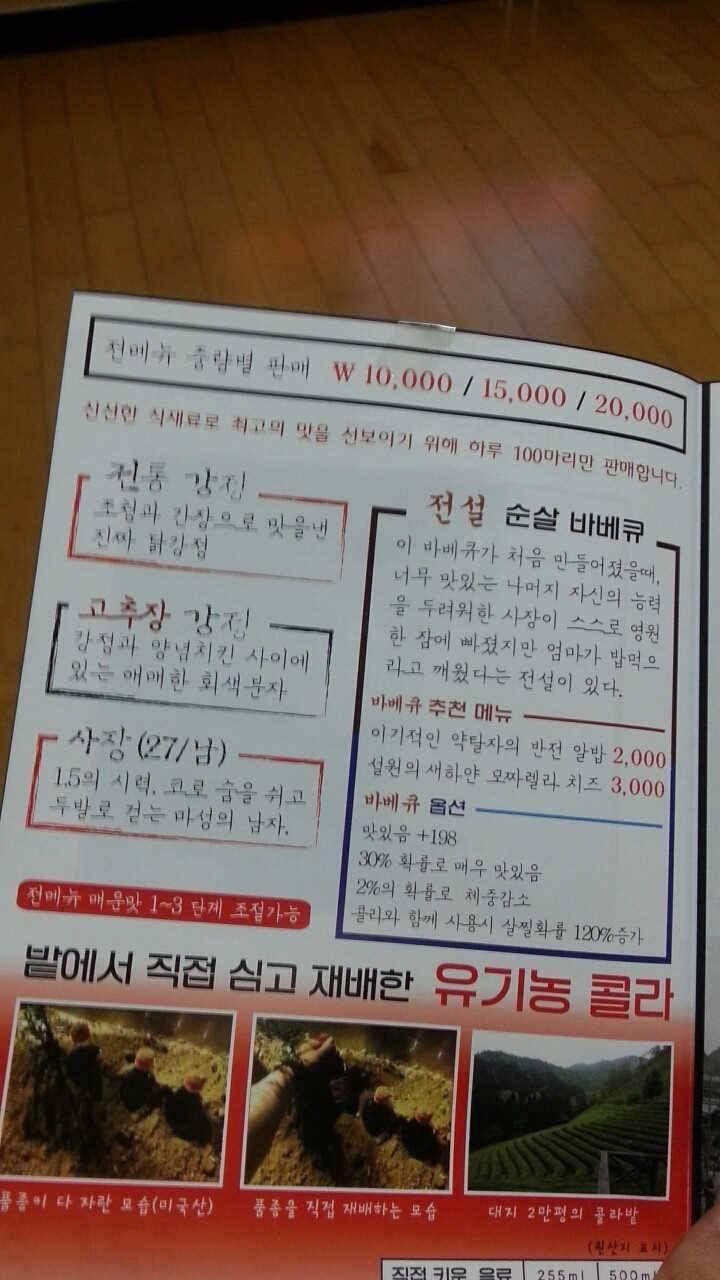 전메뉴 중량별 판매 ₩ 10,000 / 15,000 / 20,000
신선한 식재료로 최고의 맛을 선보이기 위해 하루 100마리만 판매합니다.
전통 강정
조청과 간장으로 맛을낸
진짜 닭강정
고추장 강정
강정과 양념치킨 사이에
있는 애매한 회색분자
사장 (27/남)
1.5의 시력, 코로 숨을 쉬고
두발로 걷는 마성의 남자.
전메뉴 매운맛 1~3 단계 조절가능
전설 순살 바베큐
이 바베큐가 처음 만들어졌을때,
너무 맛있는 나머지 자신의 능력
을 두려워한 사장이 스스로 영원
한 잠에 빠졌지만 엄마가 밥먹으
라고 깨웠다는 전설이 있다.
바베큐 추천 메뉴
이기적인 약탈자의 반전 알밥 2,000
설원의 새하얀 모짜렐라 치즈 3,000
바베큐 옵션
맛있음 +198
30% 확률로 매우 맛있음
2%의 확률로 체중감소
콜라와 함께 사용시 살찔확률 120%증가
밭에서 직접 심고 재배한 유기농 콜라
품종이 다 자란 모습(미국산)
품종을 직접 재배하는 모습
대지 2만평의 콜라밭
(원산지 표시)
직접 키운 음료 255ml 500ml